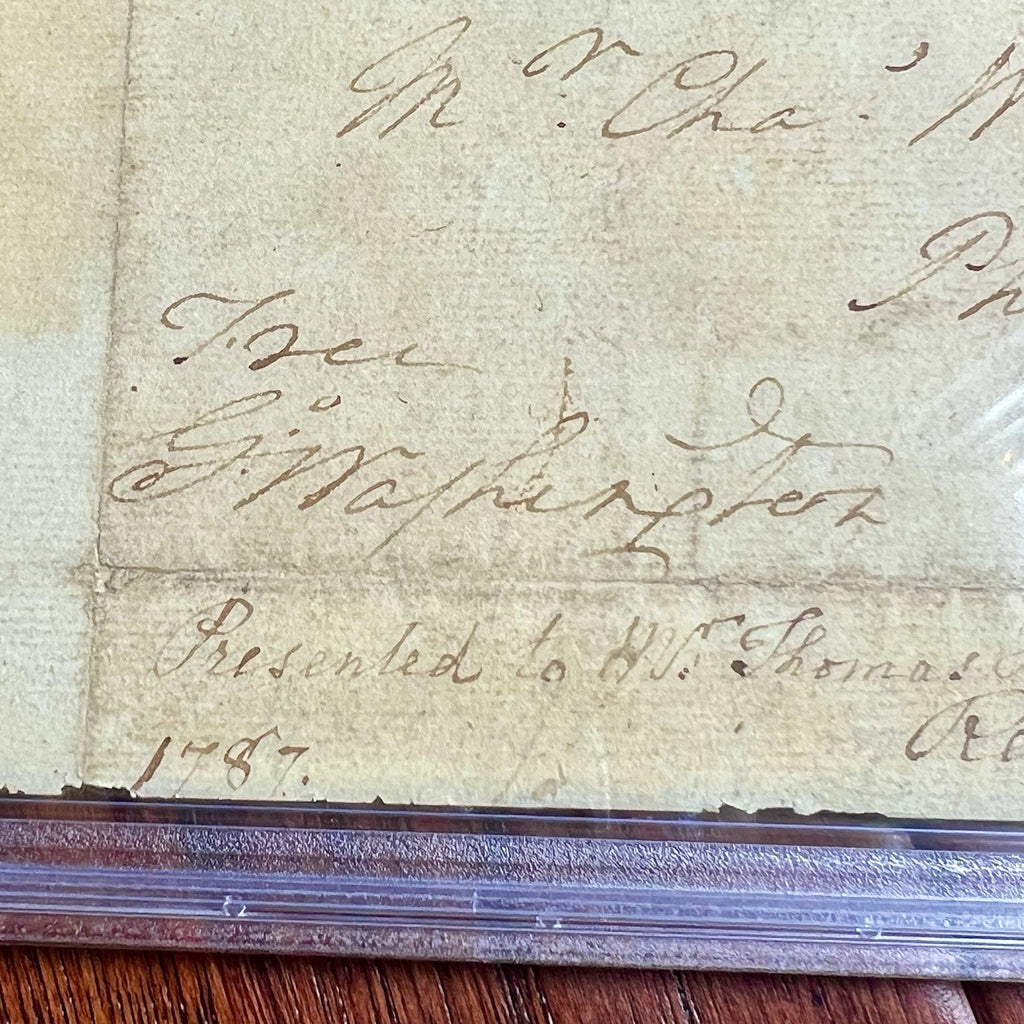 Mr. Cha.s W
Ph
Free
Go: Washington
Presented to Wm. Thomas
Re
1787.